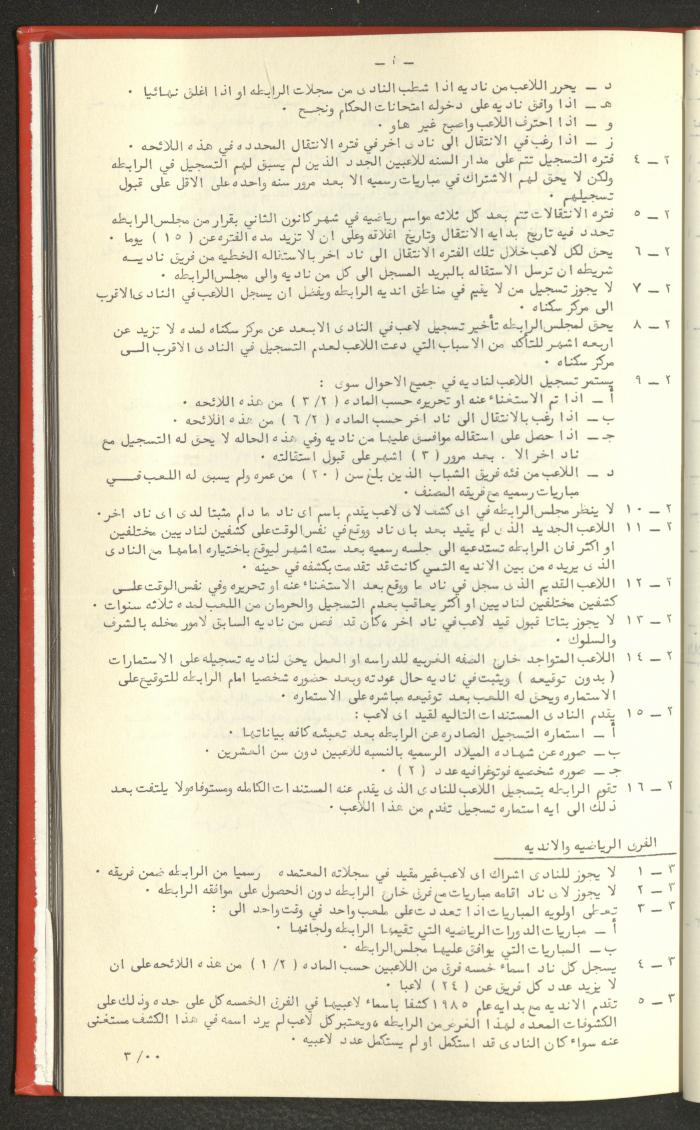 - ٤ -
د - يحرر اللاعب من ناديه اذا شطب النادى من سجلات الرابطه او اذا اغلق نهائيا .
هـ - اذا وافق ناديه على دخوله امتحانات الحكام ونجح .
و - اذا احترف اللاعب واصبح غير هاو .
ز - اذا رغب في الانتقال الى نادى اخر في فتره الانتقال المحدده في هذه اللائحه .
٢ - ٤ فتره التسجيل تتم على مدار السنه للاعبين الجدد الذين لم يسبق لهم التسجيل في الرابطه
ولكن لا يحق لهم الاشتراك في مباريات رسميه الا بعد مرور سنه واحده على الاقل على قبول
تسجيلهم .
٢ - ٥ فتره الانتقالات تتم بعد كل ثلاثه مواسم رياضيه في شهر كانون الثاني بقرار من مجلس الرابطه
تحدد فيه تاريخ بدايه الانتقال وتاريخ اغلاقه وعلى ان لا تزيد مده الفتره عن ( ١٥ ) يوما .
٢ - ٦ يحق لكل لاعب خلال تلك الفتره الانتقال الى ناد اخر بالاستقاله الخطيه من فريق ناديه
شريطه ان ترسل الاستقاله بالبريد المسجل الى كل من ناديه والى مجلس الرابطه .
٢ - ٧ لا يجوز تسجيل من لا يقيم في مناطق انديه الرابطه ويفضل ان يسجل اللاعب في النادى الاقرب
الى مركز سكناه .
٢ - ٨ يحق لمجلس الرابطه تأخير تسجيل لاعب في النادى الابعد عن مركز سكناه لمده لا تزيد عن
اربعه اشهر للتأكد من الاسباب التي دعت اللاعب لعدم التسجيل في النادى الاقرب الى
مركز سكناه .
٢ - ٩ يستمر تسجيل اللاعب لناديه في جميع الاحوال سوى :
أ - اذا تم الاستغناء عنه او تحريره حسب الماده ( ٣/٢ ) من هذه اللائحه .
ب - اذا رغب بالانتقال الى ناد اخر حسب الماده ( ٦/٢ ) من هذه اللائحه .
جـ - اذا حصل على استقاله موافق عليها من ناديه وفي هذه الحاله لا يحق له التسجيل مع
ناد اخر الا . بعد مرور ( ٣ ) اشهر على قبول استقالته .
د - اللاعب من فئه فريق الشباب الذين بلغ سن ( ٢٠ ) من عمره ولم يسبق له اللعب في
مباريات رسميه مع فريقه المصنف .
٢ - ١٠ لا ينظر مجلس الرابطه في اى كشف لاى لاعب يقدم باسم اى ناد ما دام مثبتا لدى اى ناد اخر .
٢ - ١١ اللاعب الجديد الذى لم يقيد بعد باى ناد ووقع في نفس الوقت على كشفين لناديين مختلفين
او اكثر فان الرابطه تستدعيه الى جلسه رسميه بعد سته اشهر ليوقع باختياره امامها مع النادى
الذى يريده من بين الانديه التي كانت قد تقدمت بكشفه في حينه .
٢ - ١٢ اللاعب القديم الذى سجل في ناد ما ووقع بعد الاستغناء عنه او تحريره وفي نفس الوقت على
كشفين مختلفين لناديين او اكثر يعاقب بعدم التسجيل والحرمان من اللعب لمده ثلاثه سنوات .
٢ - ١٣ لا يجوز بتاتا قبول قيد لاعب في ناد اخر وكان قد فصل من ناديه السابق لامور مخله بالشرف
والسلوك .
٢ - ١٤ اللاعب المتواجد خارج الضفه الغربيه للدراسه او العمل يحق لناديه تسجيله على الاستمارات
( بدون توقيعه ) ويثبت في ناديه حال عودته وبعد حضوره شخصيا امام الرابطه للتوقيع على
الاستماره ويحق له اللعب بعد توقيعه مباشره على الاستماره .
٢ - ١٥ يقدم النادى المستندات التاليه لقيد اى لاعب :
أ - استماره التسجيل الصادره عن الرابطه بعد تعبئه كافه بياناتها .
ب - صوره عن شهاده الميلاد الرسميه بالنسبه للاعبين دون سن العشرين .
جـ - صوره شخصيه فوتوغرافيه عدد ( ٢ ) .
٢ - ١٦ تقوم الرابطه بتسجيل اللاعب للنادى الذى يقدم عنه المستندات الكامله ومستوفاه ولا يلتفت بعد
ذلك الى ايه استماره تسجيل تقدم من هذا اللاعب .
الفرق الرياضيه والانديه
٣ - ١ لا يجوز للنادى اشراك اى لاعب غير مقيد في سجلاته المعتمده رسميا من الرابطه ضمن فريقه .
٣ - ٢ لا يجوز لاى ناد اقامه مباريات مع فرق خارج الرابطه دون الحصول على موافقه الرابطه .
٣ - ٣ تعطى اولويه المباريات اذا تعددت على ملعب واحد في وقت واحد الى :
أ - مباريات الدورات الرياضيه التي تقيمها الرابطه ولجانها .
ب - المباريات التي يوافق عليها مجلس الرابطه .
٣ - ٤ يسجل كل ناد اسماء خمسه فرق من اللاعبين حسب الماده ( ١/٢ ) من هذه اللائحه على ان
لا يزيد عدد كل فريق عن ( ٢٤ ) لاعبا .
٣ - ٥ تقدم الانديه مع بدايه عام ١٩٨٥ كشفا باسماء لاعبيها في الفرق الخمسه كل على حده وذلك على
الكشوفات المعده لهذا الغرض من الرابطه ويعتبر كل لاعب لم يرد اسمه في هذا الكشف مستغنى
عنه سواء كان النادى قد استكمل او لم يستكمل عدد لاعبيه .
٣/٠٠